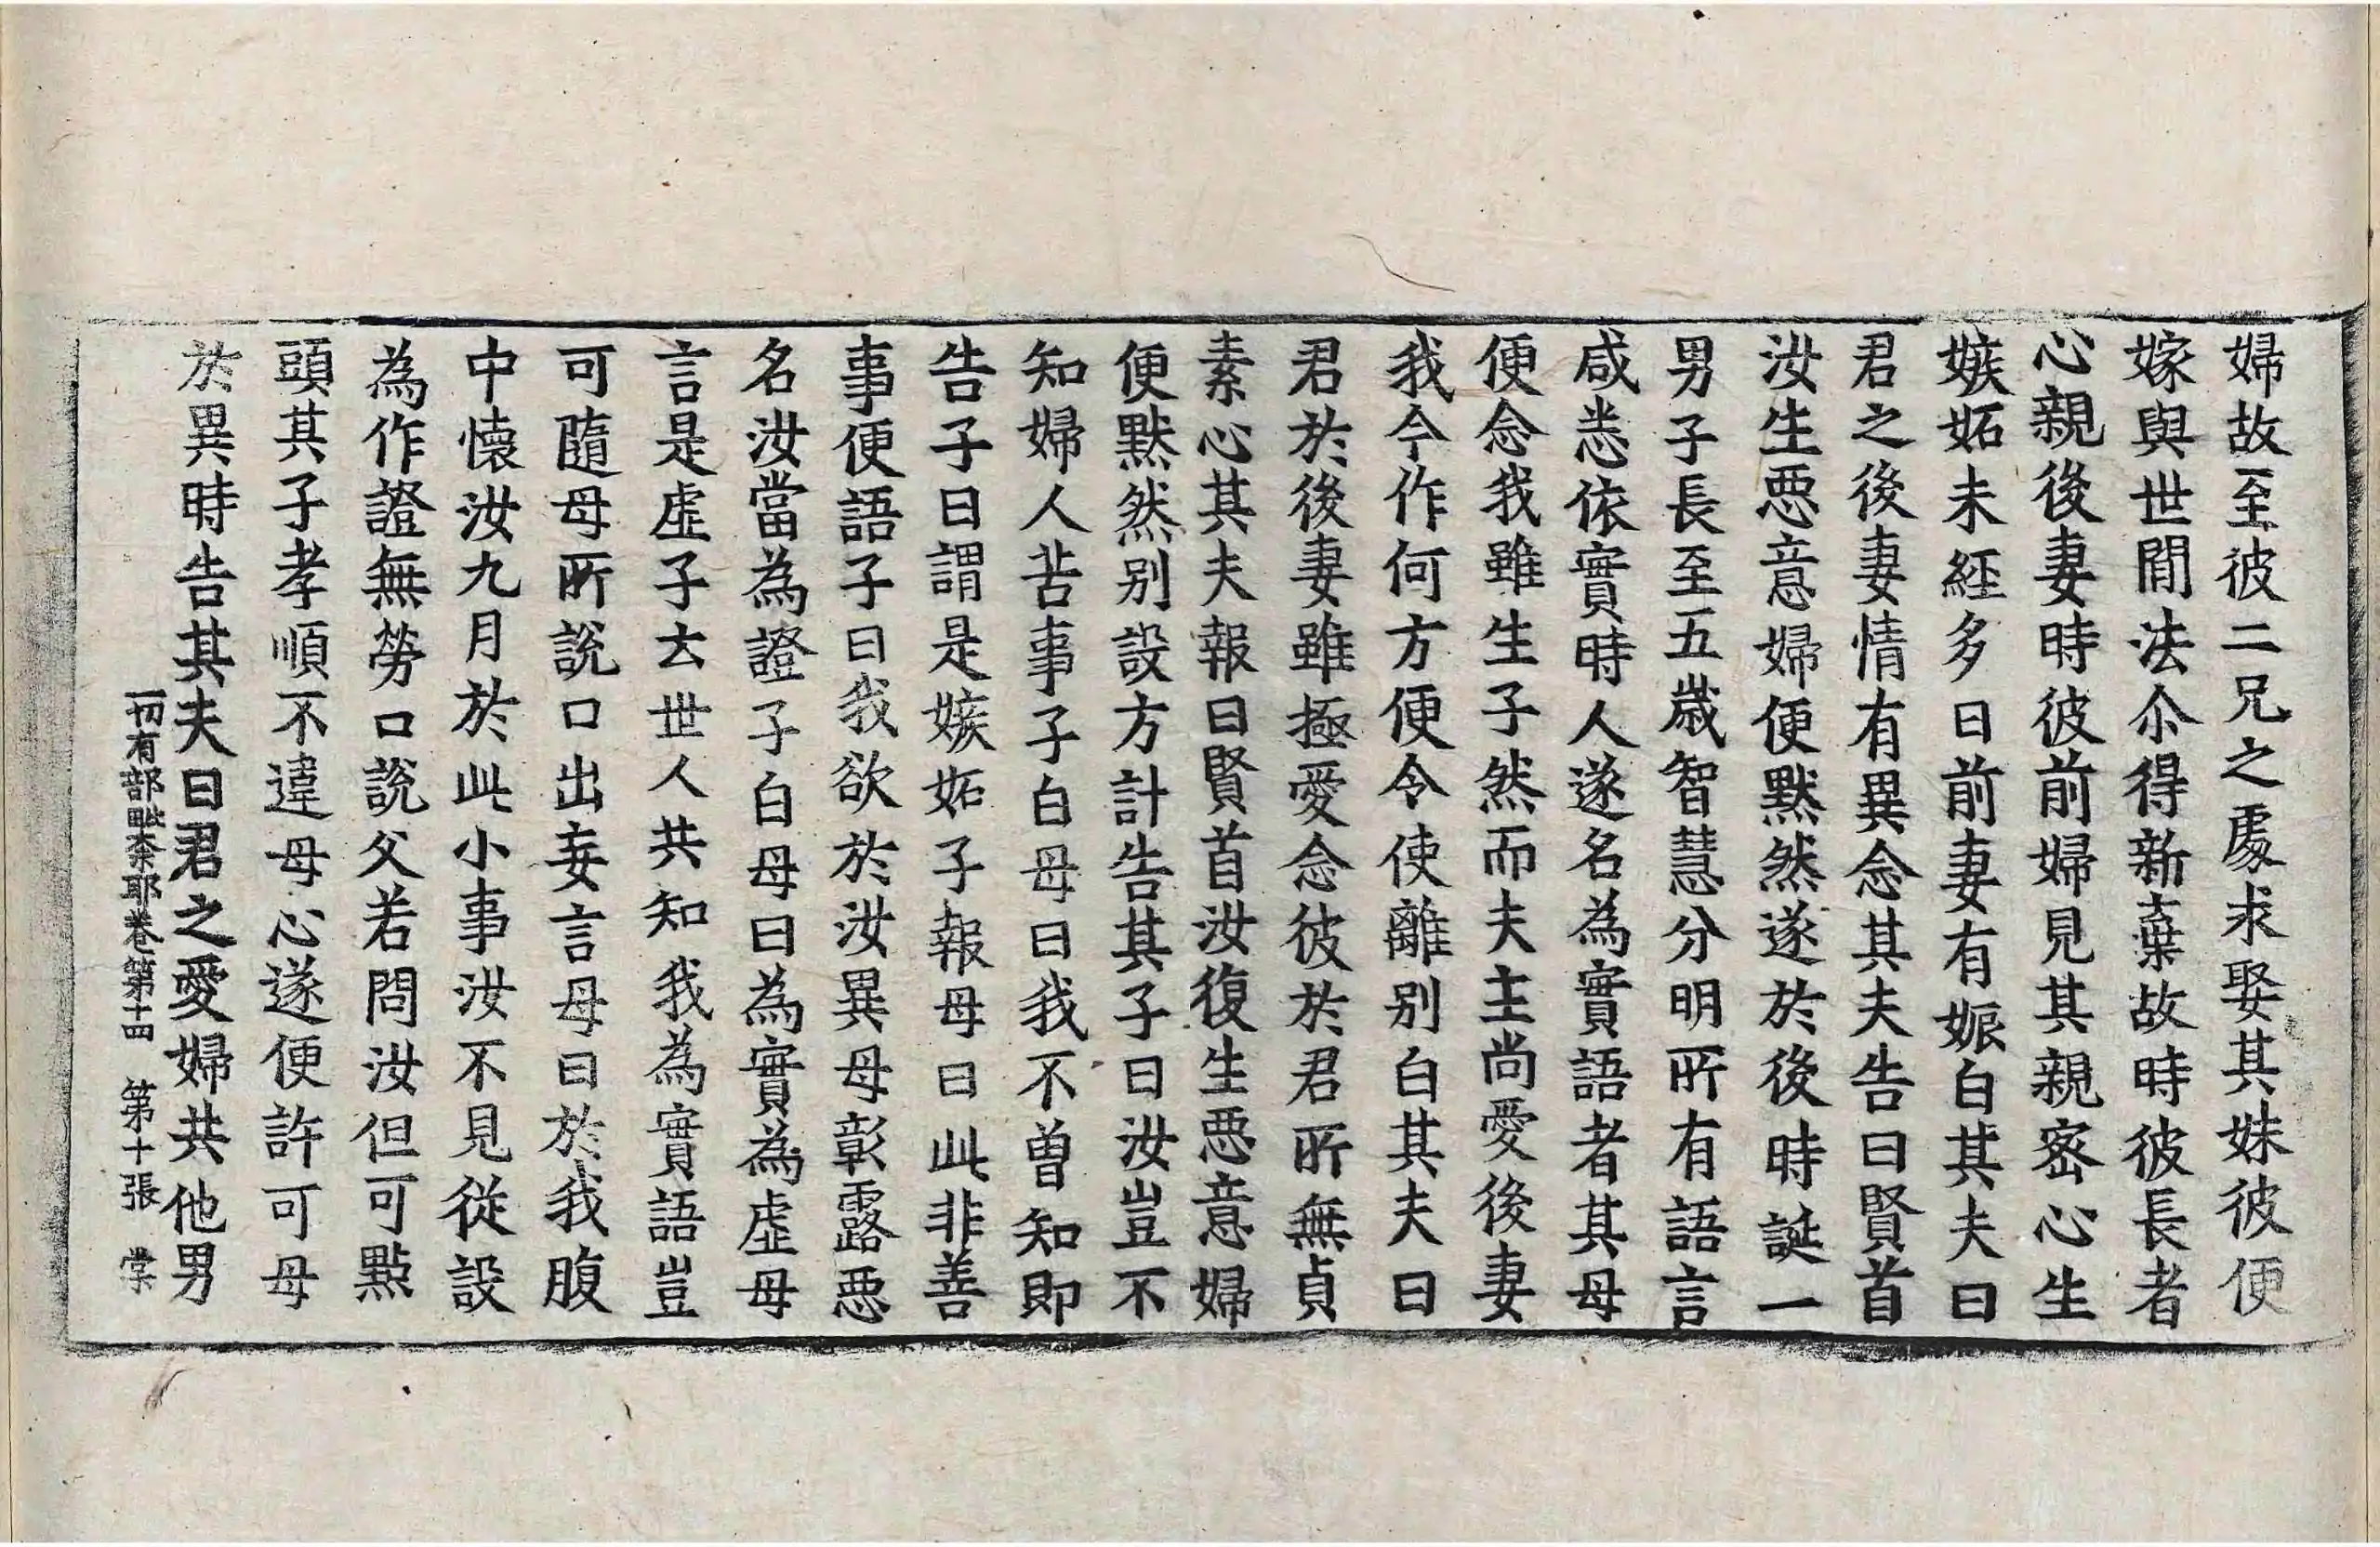 婦故至彼二兄之處求娶其妹彼便
嫁與世間法尒得新棄故時彼長者
心親後妻時彼前婦見其親密心生
嫉妬未經多日前妻有娠白其夫曰
君之後妻情有異念其夫告曰賢首
汝生惡意婦便默然遂於後時誕一
男子長至五歲智慧分明所有語言
咸悉依實時人遂名為實語者其母
便念我雖生子然而夫主尚愛後妻
我今作何方便令使離別白其夫曰
君於後妻雖極愛念彼於君所無貞
素心其夫報曰賢首汝復生惡意婦
便默然別設方計告其子曰汝豈不
知婦人苦事子白母曰我不曾知即
告子曰謂是嫉妬子報母曰此非善
事便語子曰我欲於汝異母彰露惡
名汝當為證子白母曰為實為虛母
言是虛子云世人共知我為實語豈
可隨母所說口出妄言母曰於我腹
中懷汝九月於此小事汝不見從設
為作證無勞口說父若問汝但可點
頭其子孝順不違母心遂便許可母
於異時告其夫曰君之愛婦共他男
一切有部毗奈耶卷第十四 第十張 棠